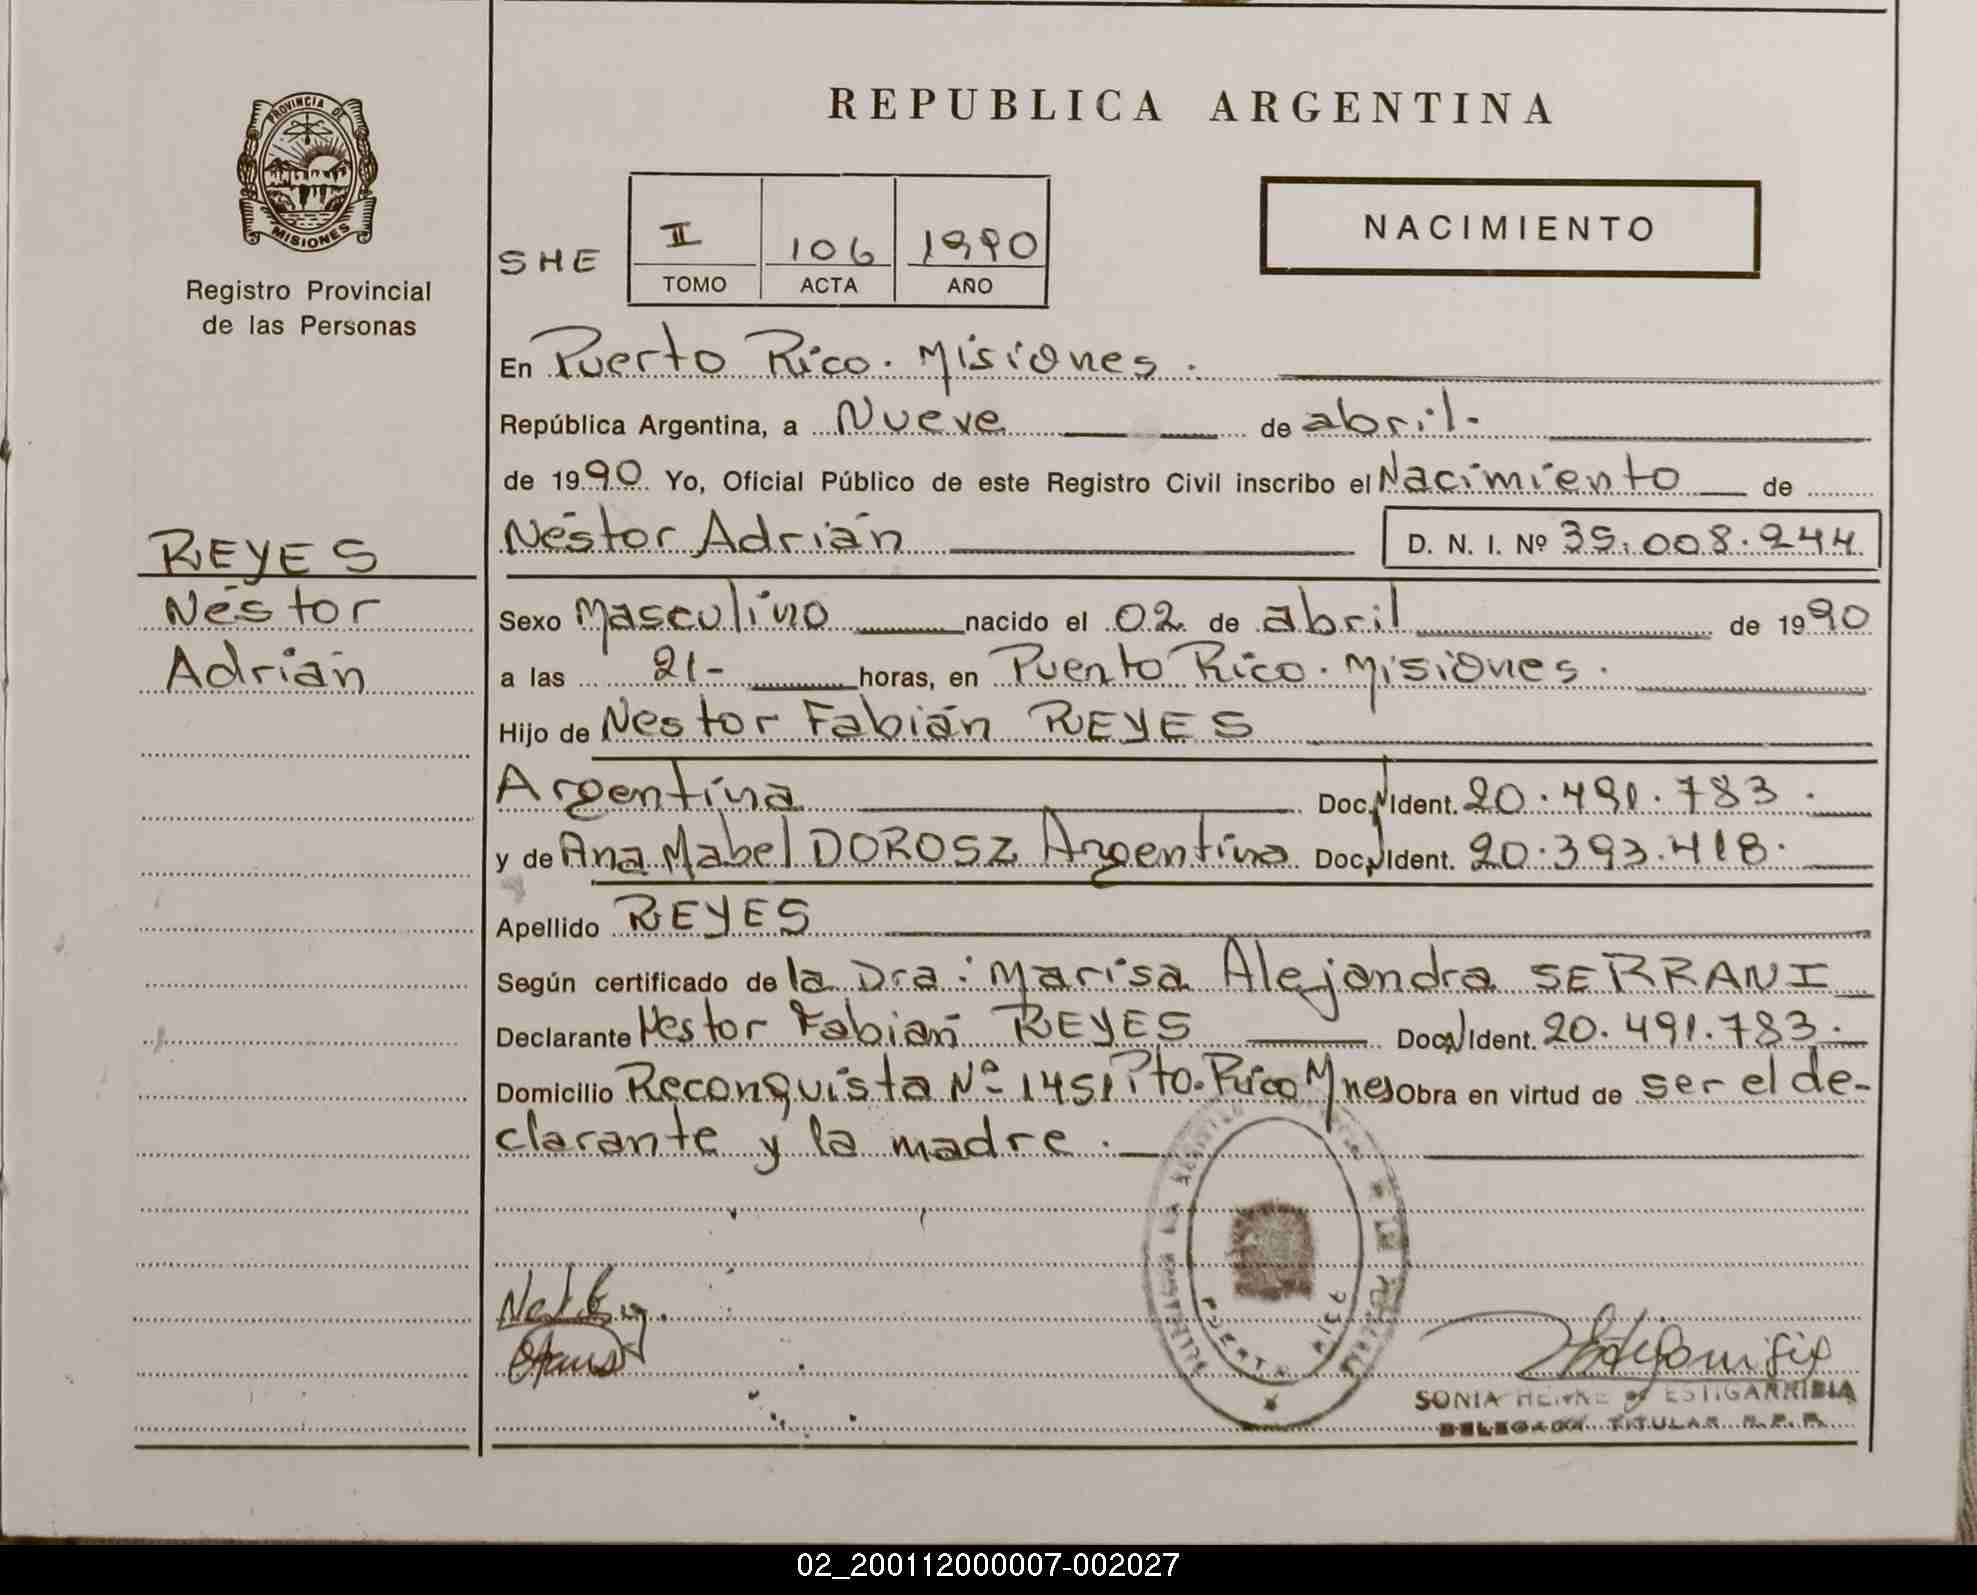 PROVINCIA DE
MISIONES
Registro Provincial
de las Personas
REPUBLICA ARGENTINA
NACIMIENTO
SHE
II 106 1990
TOMO ACTA AÑO
En Puerto Rico. Misiones.
República Argentina, a Nueve de abril.
de 1990 Yo, Oficial Público de este Registro Civil inscribo el Nacimiento de
Néstor Adrián D. N. I. Nº 35.008.244
REYES
Néstor
Adrián
Sexo Masculino nacido el 02 de abril de 1990
a las 21- horas, en Puerto Rico. Misiones.
Hijo de Nestor Fabián REYES
Argentina Doc. N Ident. 20.491.783.
y de Ana Mabel DOROSZ Argentina Doc. N Ident. 20.393.418.
Apellido REYES
Según certificado de la Dra: Marisa Alejandra SERRANI
Declarante Nestor Fabián REYES Doc. N Ident. 20.491.783.
Domicilio Reconquista Nº 1451 Pto. Rico Mnes Obra en virtud de ser el de-
clarante y la madre.
PUERTO RICO
SONIA HENKE de ESTIGARRIBIA
DELEGADA TITULAR R.P.P.
02_200112000007-002027